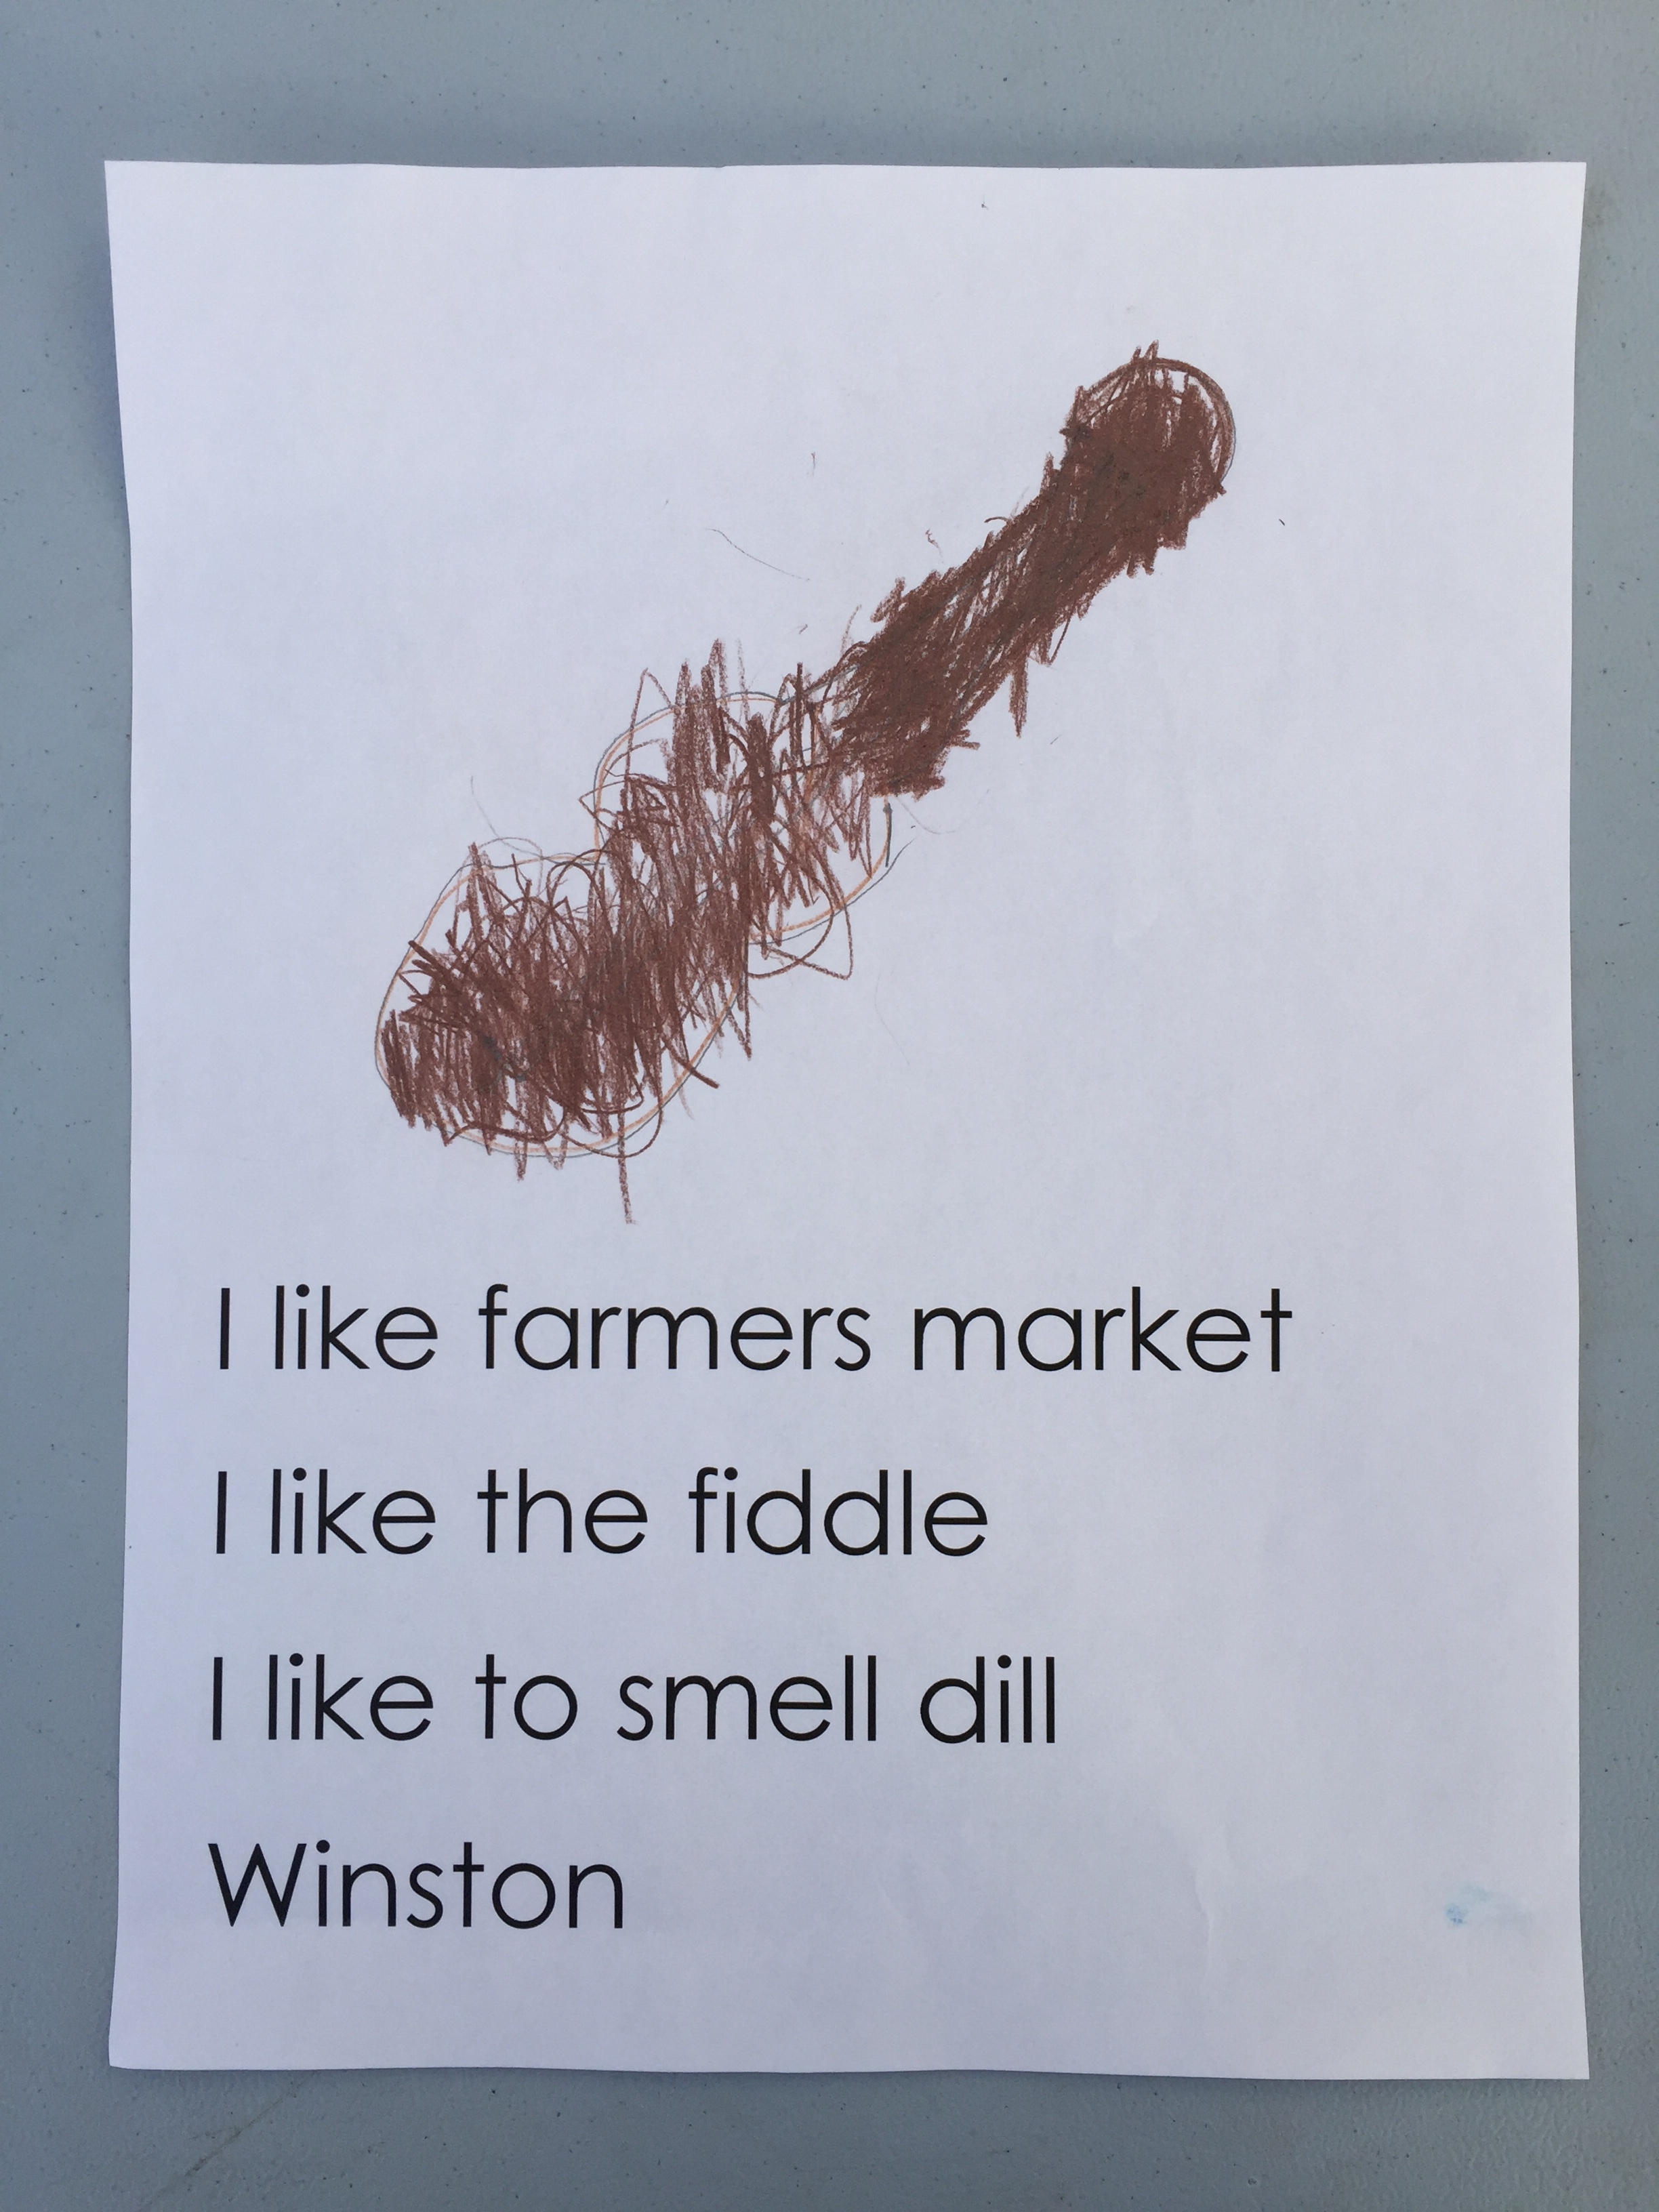 I like farmers market
I like the fiddle
I like to smell dill
Winston